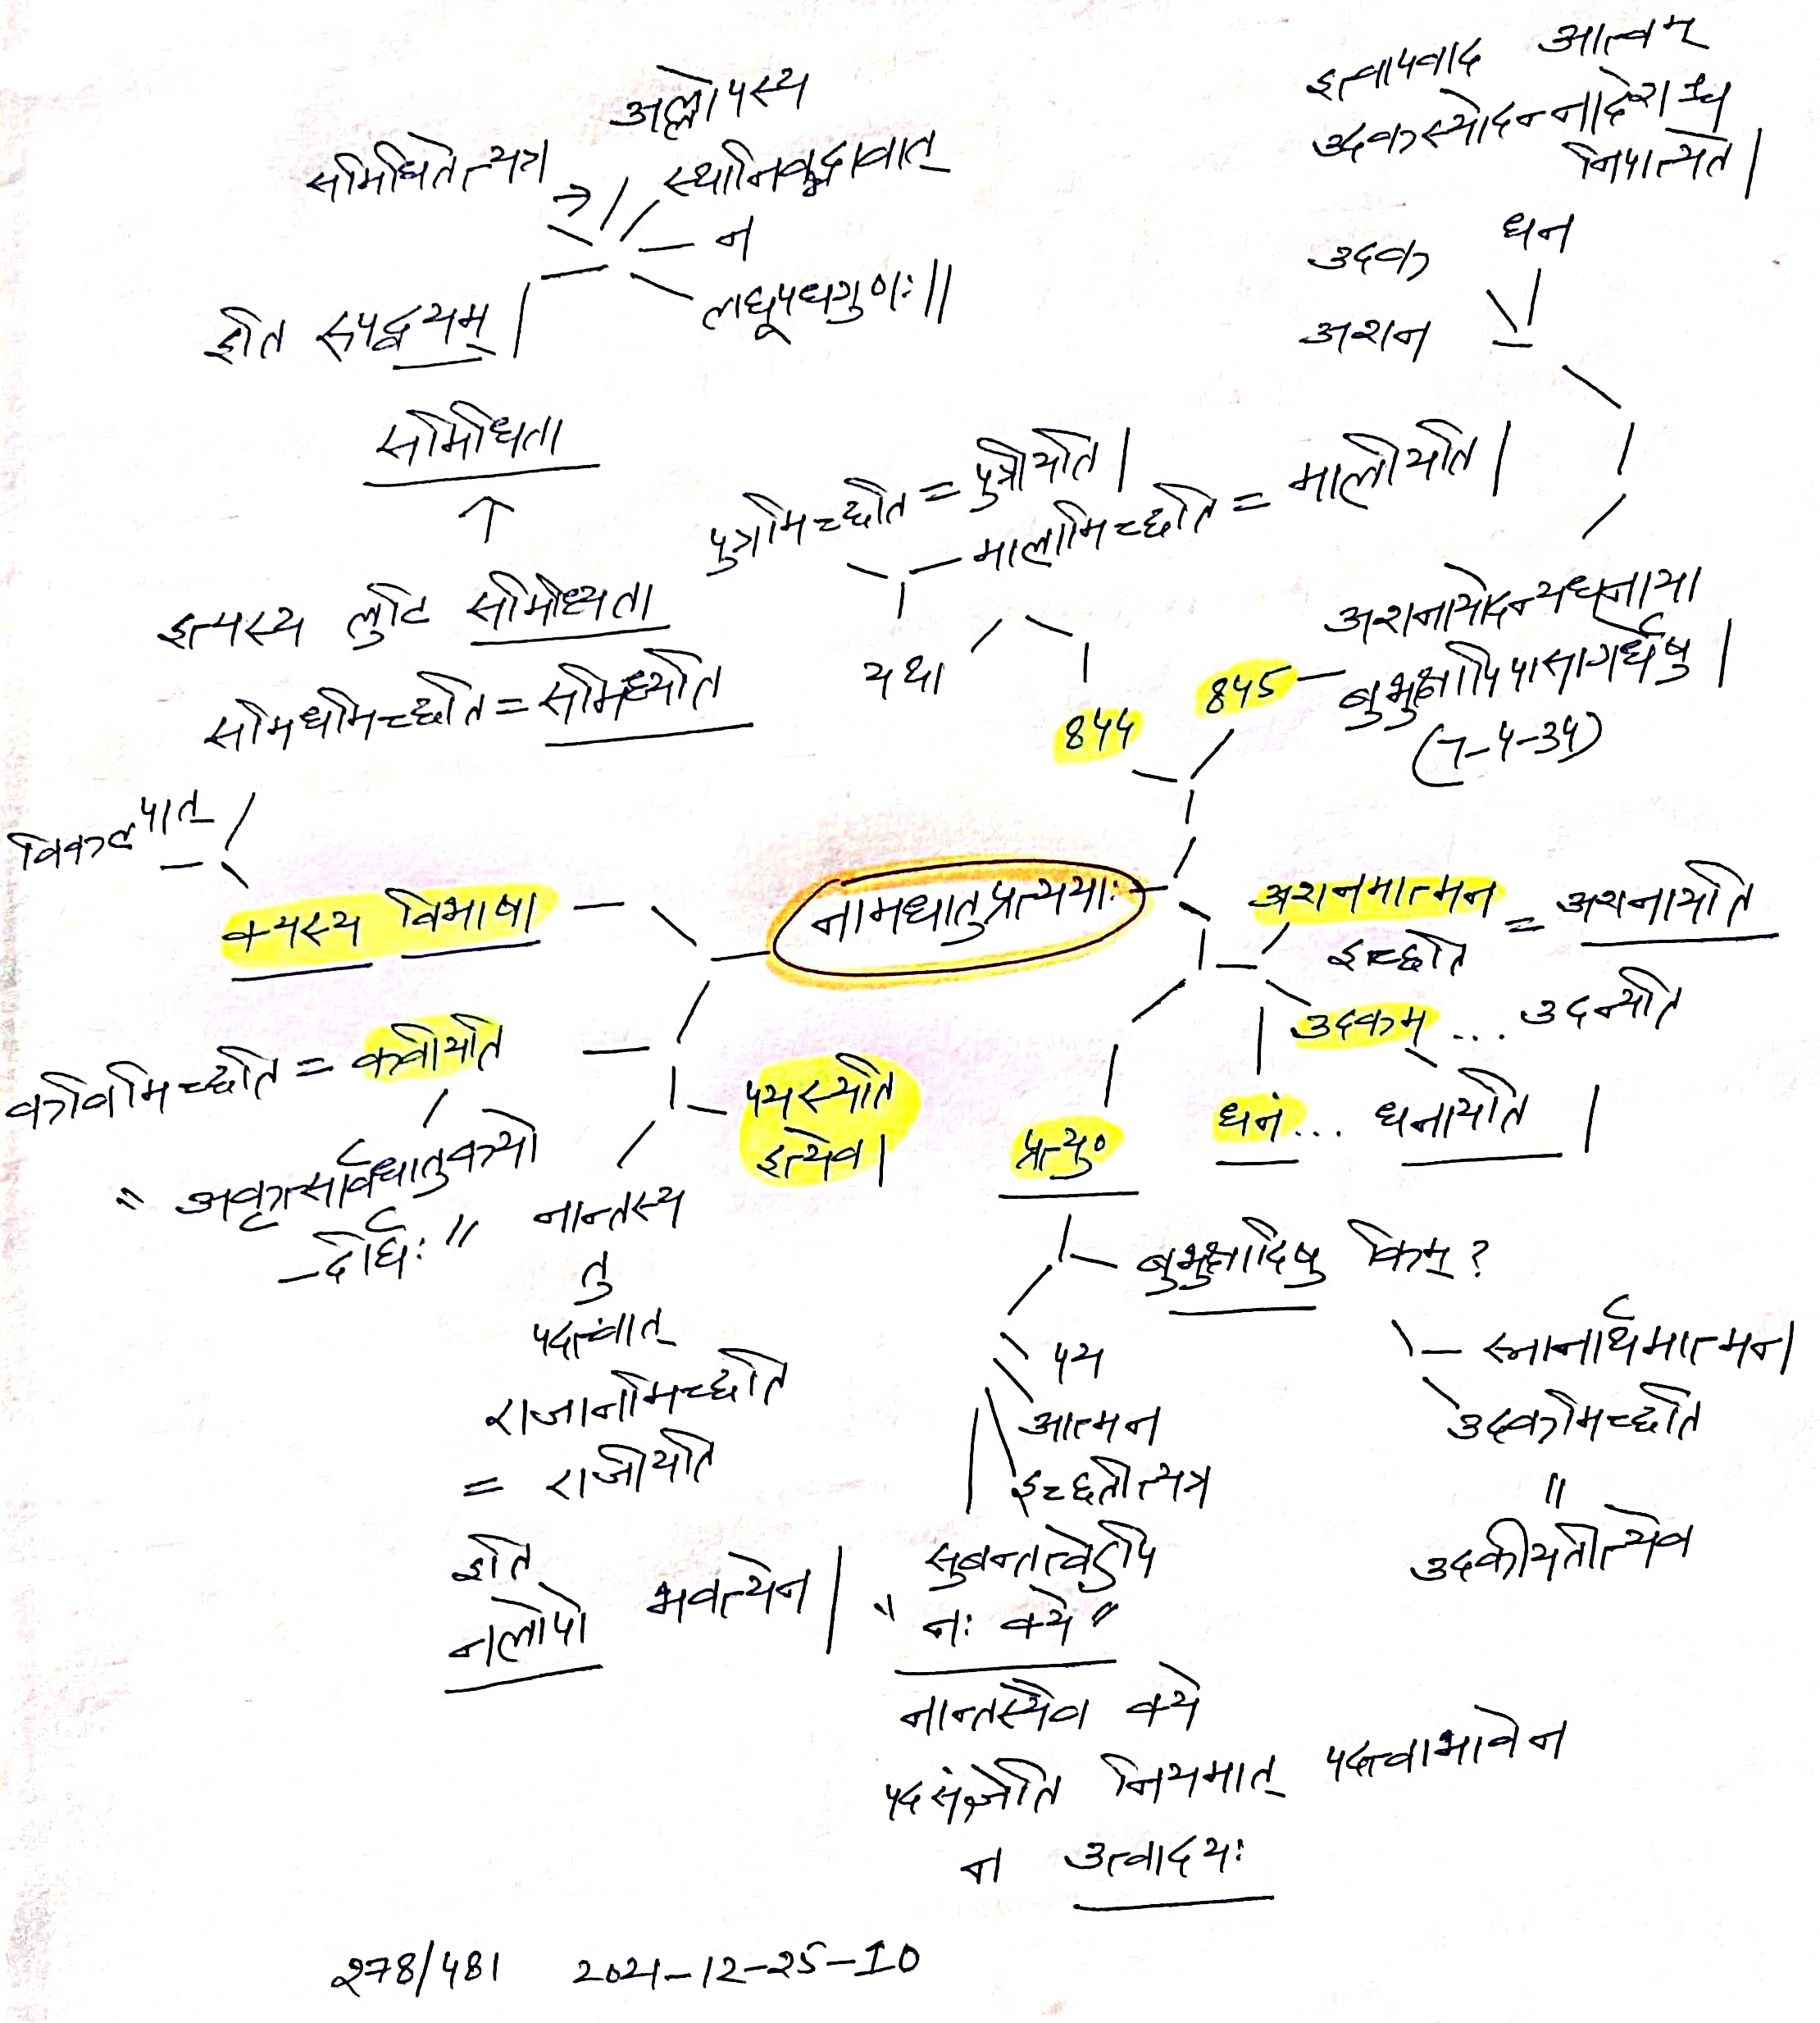 अल्लोपस्य
समिधितेत्यत्र
स्थानिवद्भावात्
न
लघूपधगुणः॥
इति रूपद्वयम्।
समिधिता
इत्यस्य लुटि समिध्यिता
समिधमिच्छति = समिध्यति
विकल्पात्
क्यस्य विभाषा
इत्वापवाद आत्वम्
उदकस्योदन्नादेशश्च
निपात्यते।
धन
उदक
अशन
पुत्रमिच्छति = पुत्रीयति।
मालामिच्छति = मालीयति।
यथा
844
845
अशनायोदन्यधनाया
बुभुक्षापिपासागर्धेषु।
(7-4-34)
नामधातुप्रत्ययाः
अशनमात्मन
इच्छति
= अशनायति
उदकम् ... उदन्यति
धनं ... धनायति।
प्रत्यु०
कविमिच्छति = कवीयति
"अकृत्सार्वधातुकयो
-र्दीर्घः"
पयस्यति
इत्येव।
नान्तस्य
तु
पदत्वात्
राजानमिच्छति
= राजीयति
इति
नलोपो
भवत्येन।
बुभुक्षादिषु किम्?
स्नानार्थमात्मन
उदकमिच्छति
=
उदकीयतीत्येव
पय
आत्मन
इच्छतीत्यत्र
सुबन्तत्वेऽपि
"नः क्ये"
नान्तस्यैव क्ये
पदसंज्ञेति नियमात् पदत्वाभावेन
न उत्वादयः
278/481 2021-12-25-10